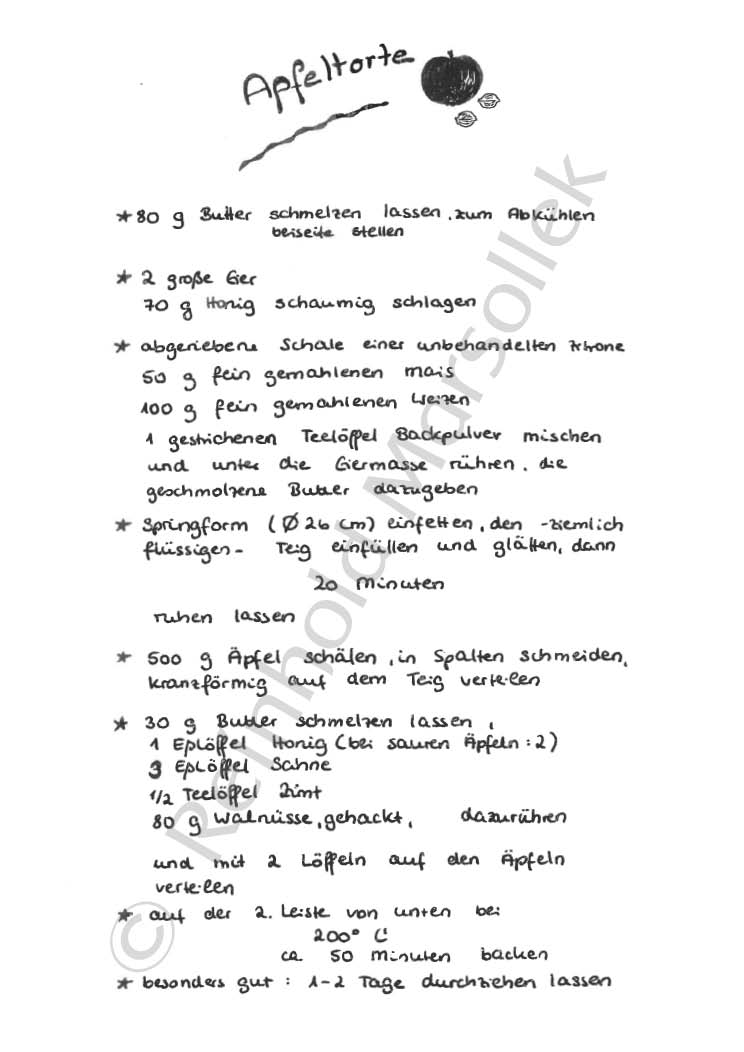 Apfeltorte
* 80 g Butter schmelzen lassen, zum Abkühlen
beiseite stellen
* 2 große Eier
70 g Honig schaumig schlagen
* abgeriebene Schale einer unbehandelten Zitrone
50 g fein gemahlenen Mais
100 g fein gemahlenen Weizen
1 gestrichenen Teelöffel Backpulver mischen
und unter die Eiermasse rühren, die
geschmolzene Butter dazugeben
* Springform (Ø 26 cm) einfetten, den -ziemlich
flüssigen- Teig einfüllen und glätten, dann
20 Minuten
ruhen lassen
* 500 g Äpfel schälen, in Spalten schneiden,
kranzförmig auf dem Teig verteilen
* 30 g Butter schmelzen lassen,
1 Eßlöffel Honig (bei sauren Äpfeln: 2)
3 Eßlöffel Sahne
1/2 Teelöffel Zimt
80 g Walnüsse, gehackt, dazurühren
und mit 2 Löffeln auf den Äpfeln
verteilen
* auf der 2. Leiste von unten bei
200° C
ca 50 Minuten backen
* besonders gut: 1-2 Tage durchziehen lassen
© Reinhold Marsollek